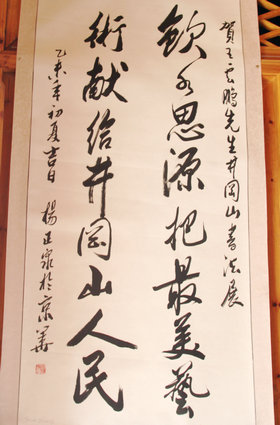 賀王云鵬先生井岡山書法展
飲水思源把最美藝
術献給井岡山人民
乙未年初夏吉日 楊正泉於京華